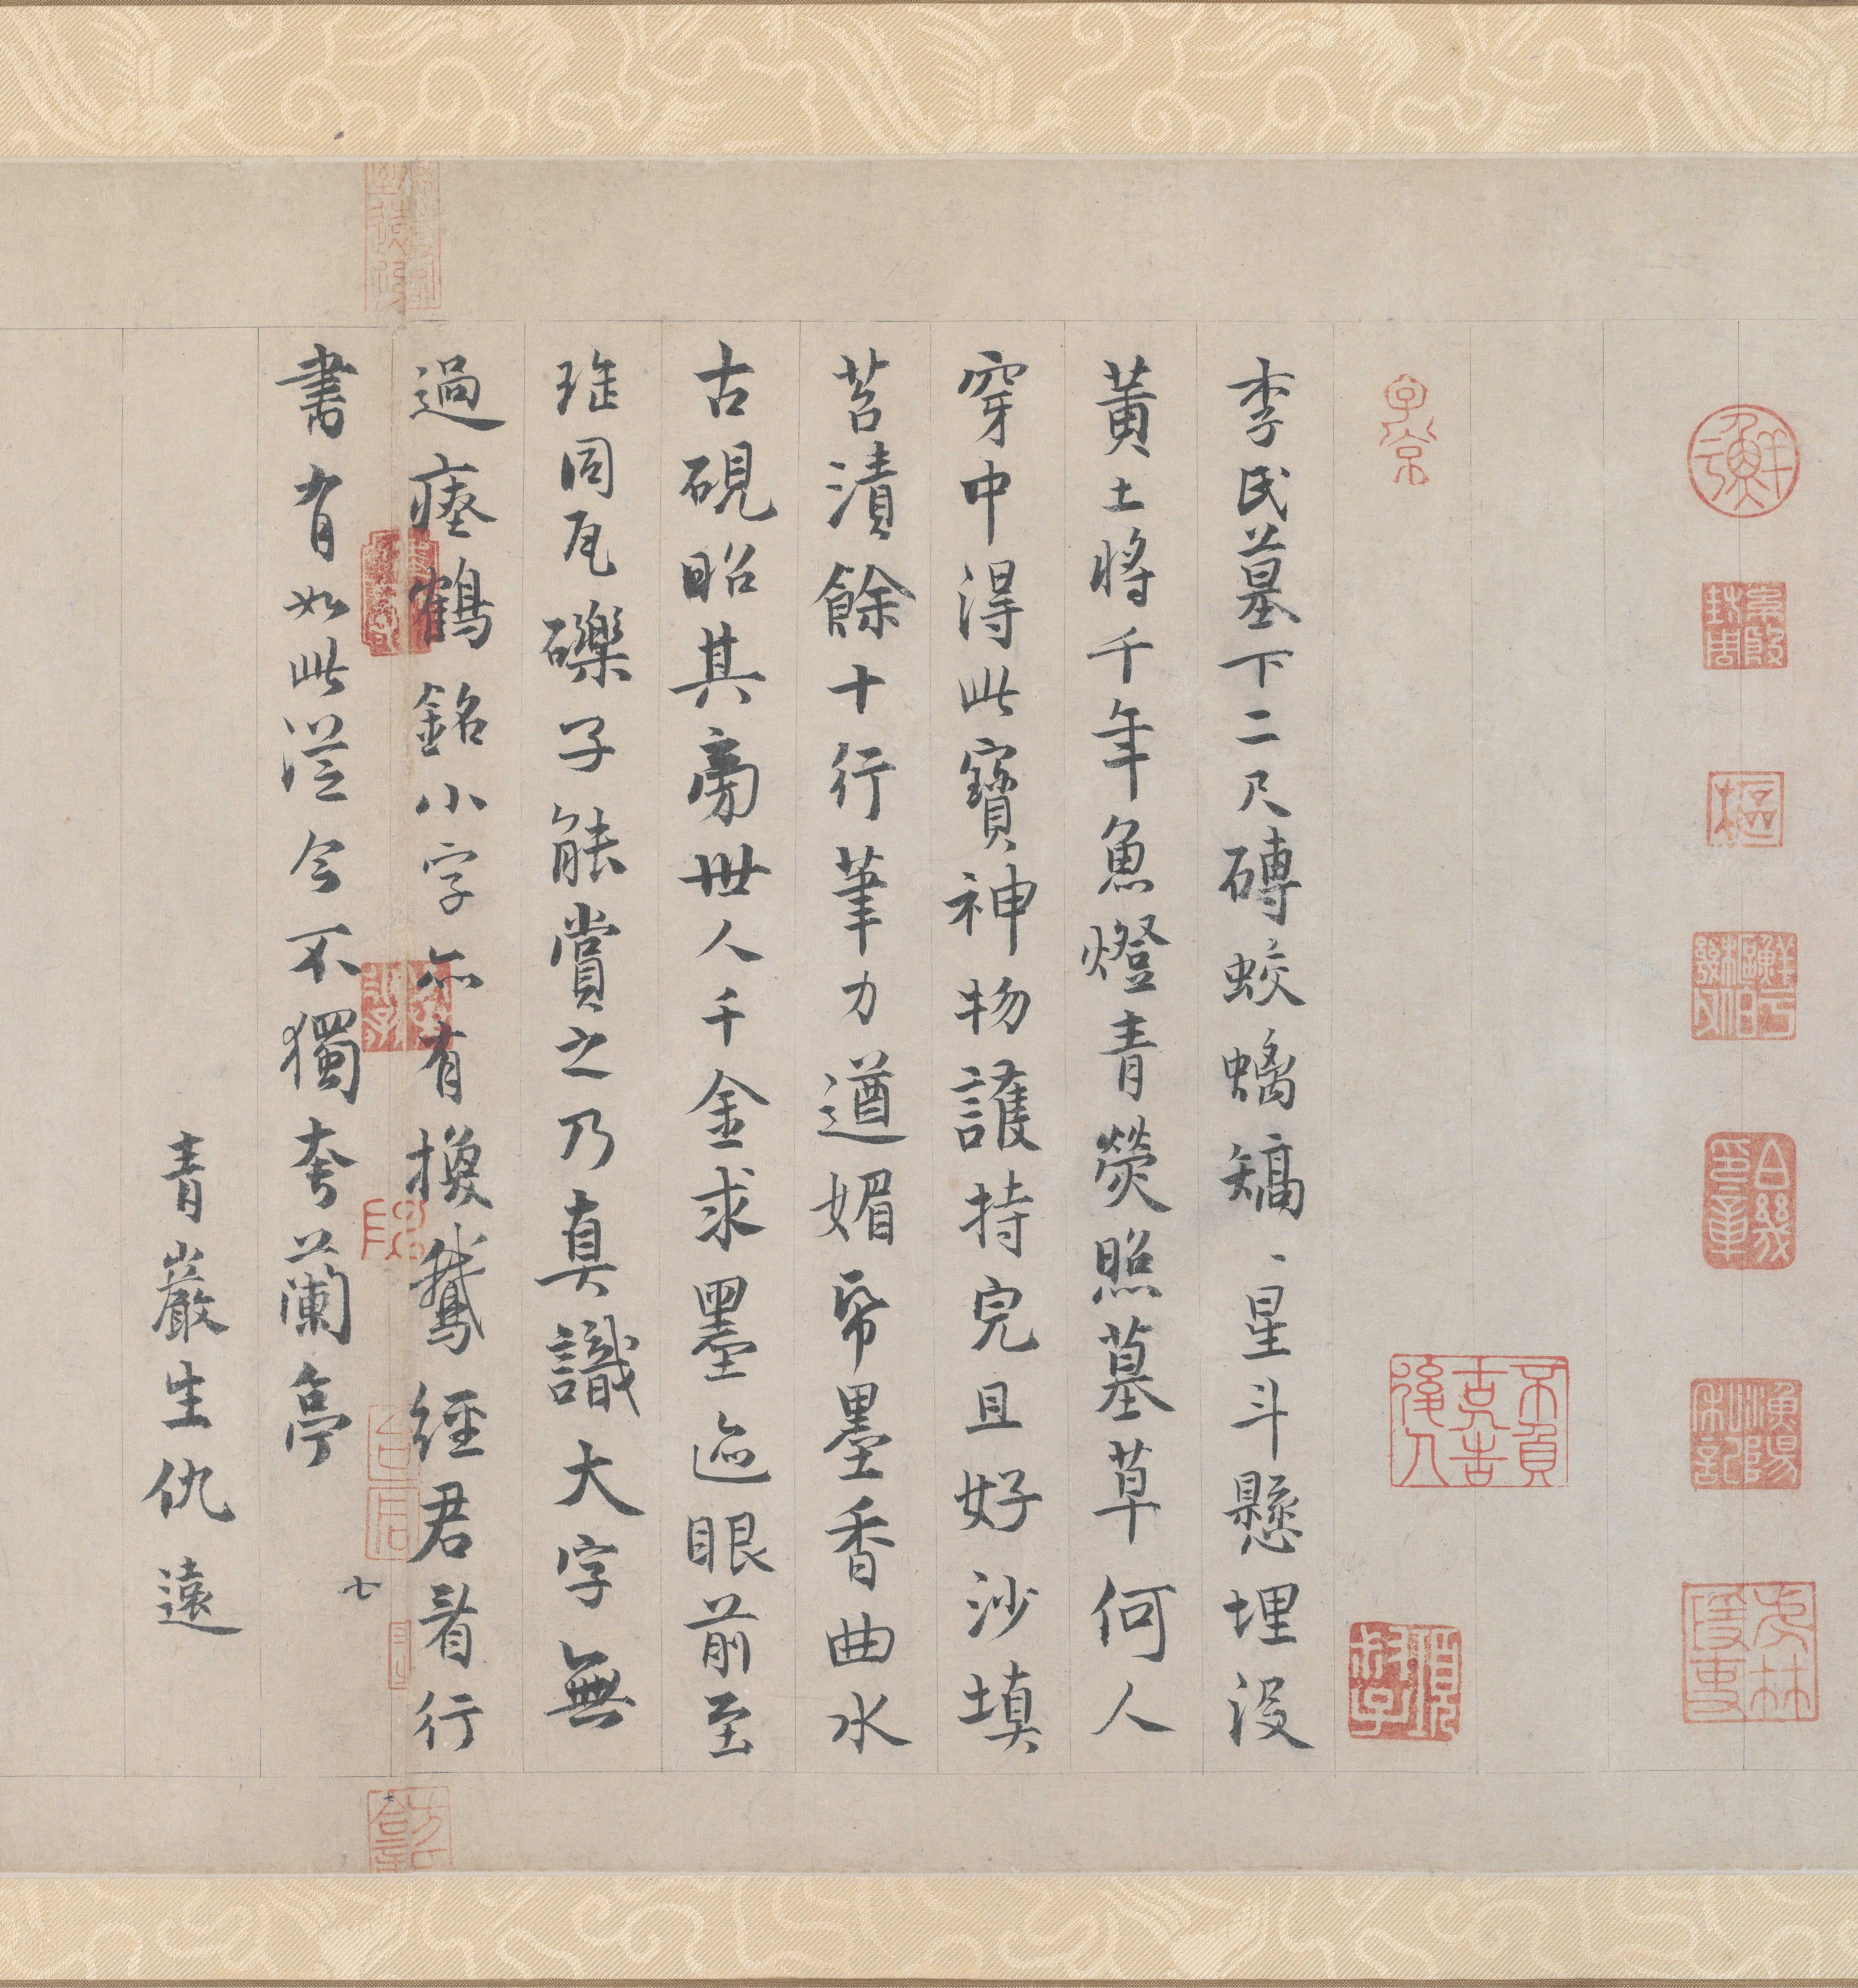 李氏墓下二尺磚蛟螭矯、星斗懸埋没
黃土將千年魚燈青熒照墓草何人
穿中得此寶神物護持完且好沙填
苔漬餘十行筆力遒媚帋墨香曲水
古硯昭其旁世人千金求墨迹眼前至
珤同瓦礫子能賞之乃真識大字無
過瘞鶴銘小字亦有換鵝經君看行
書有如此從今不獨夸蘭亭
青巖生仇遠
七